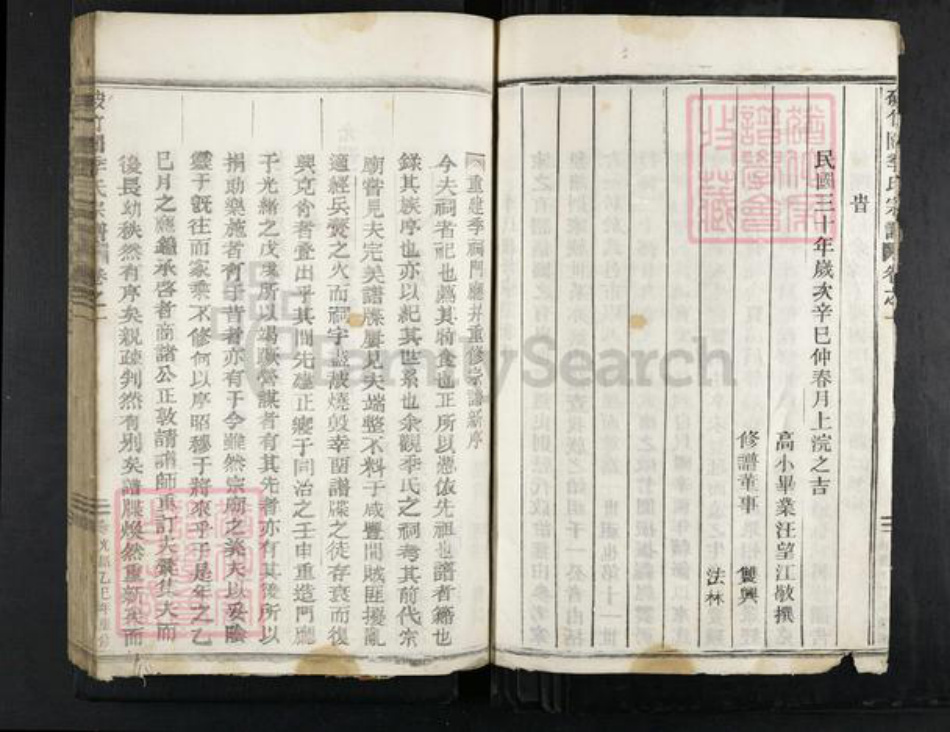 旹
民國三十年歲次辛巳仲春月上浣之吉
高小畢業汪望江敬撰
修譜董事 雙興
法林
重建季祠門廳并重修宗譜新序
今夫祠者祀也薦其特食也正所以憑依先祖也譜者籍也
錄其族序也亦以紀其世系也余觀季氏之祠考其前代宗
廟嘗見夫完美譜牒屢見夫端整不料于咸豐間賊匪擾亂
適經兵燹之火而祠宇盡被燒毀幸而譜牒之徒存衰而復
興克肖者疊出乎其間先建正寢于同治之壬申重造門廳
于光緒之戊戌所以竭蹶營謀者有其先者亦有其後所以
捐助樂施者有于昔者亦有于今雖然宗廟之美夫以妥陰
靈于旣往而家乘不修何以序昭穆于將來乎于是年之乙
巳月之應鐘承啓者商諸公正敦請譜師重訂大彙集夫而
後長幼秩然有序矣親疎判然有別矣譜牒煥然重新矣而
光緒乙巳年
FamilySearch